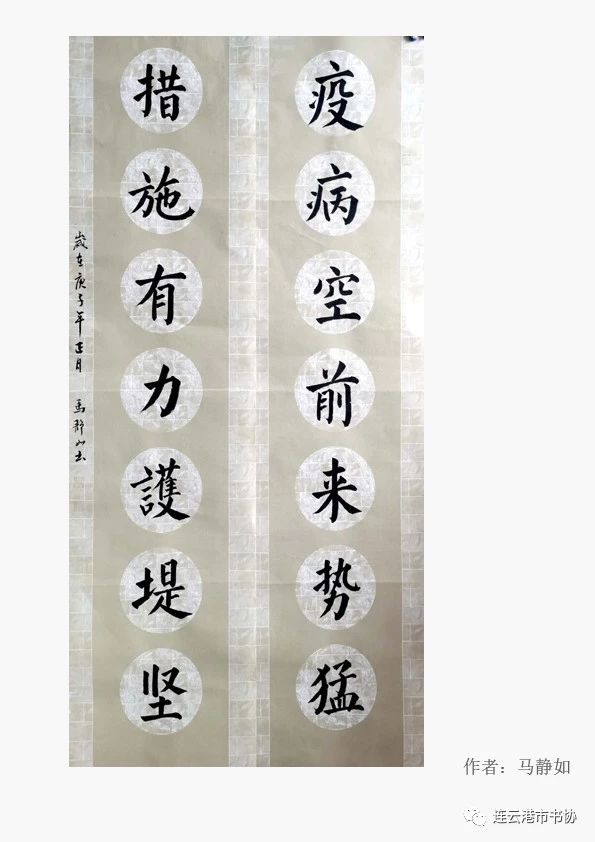 疫病空前来势猛
措施有力護堤坚
歲在庚子年正月 馬静如书
作者：马静如
连云港市书协